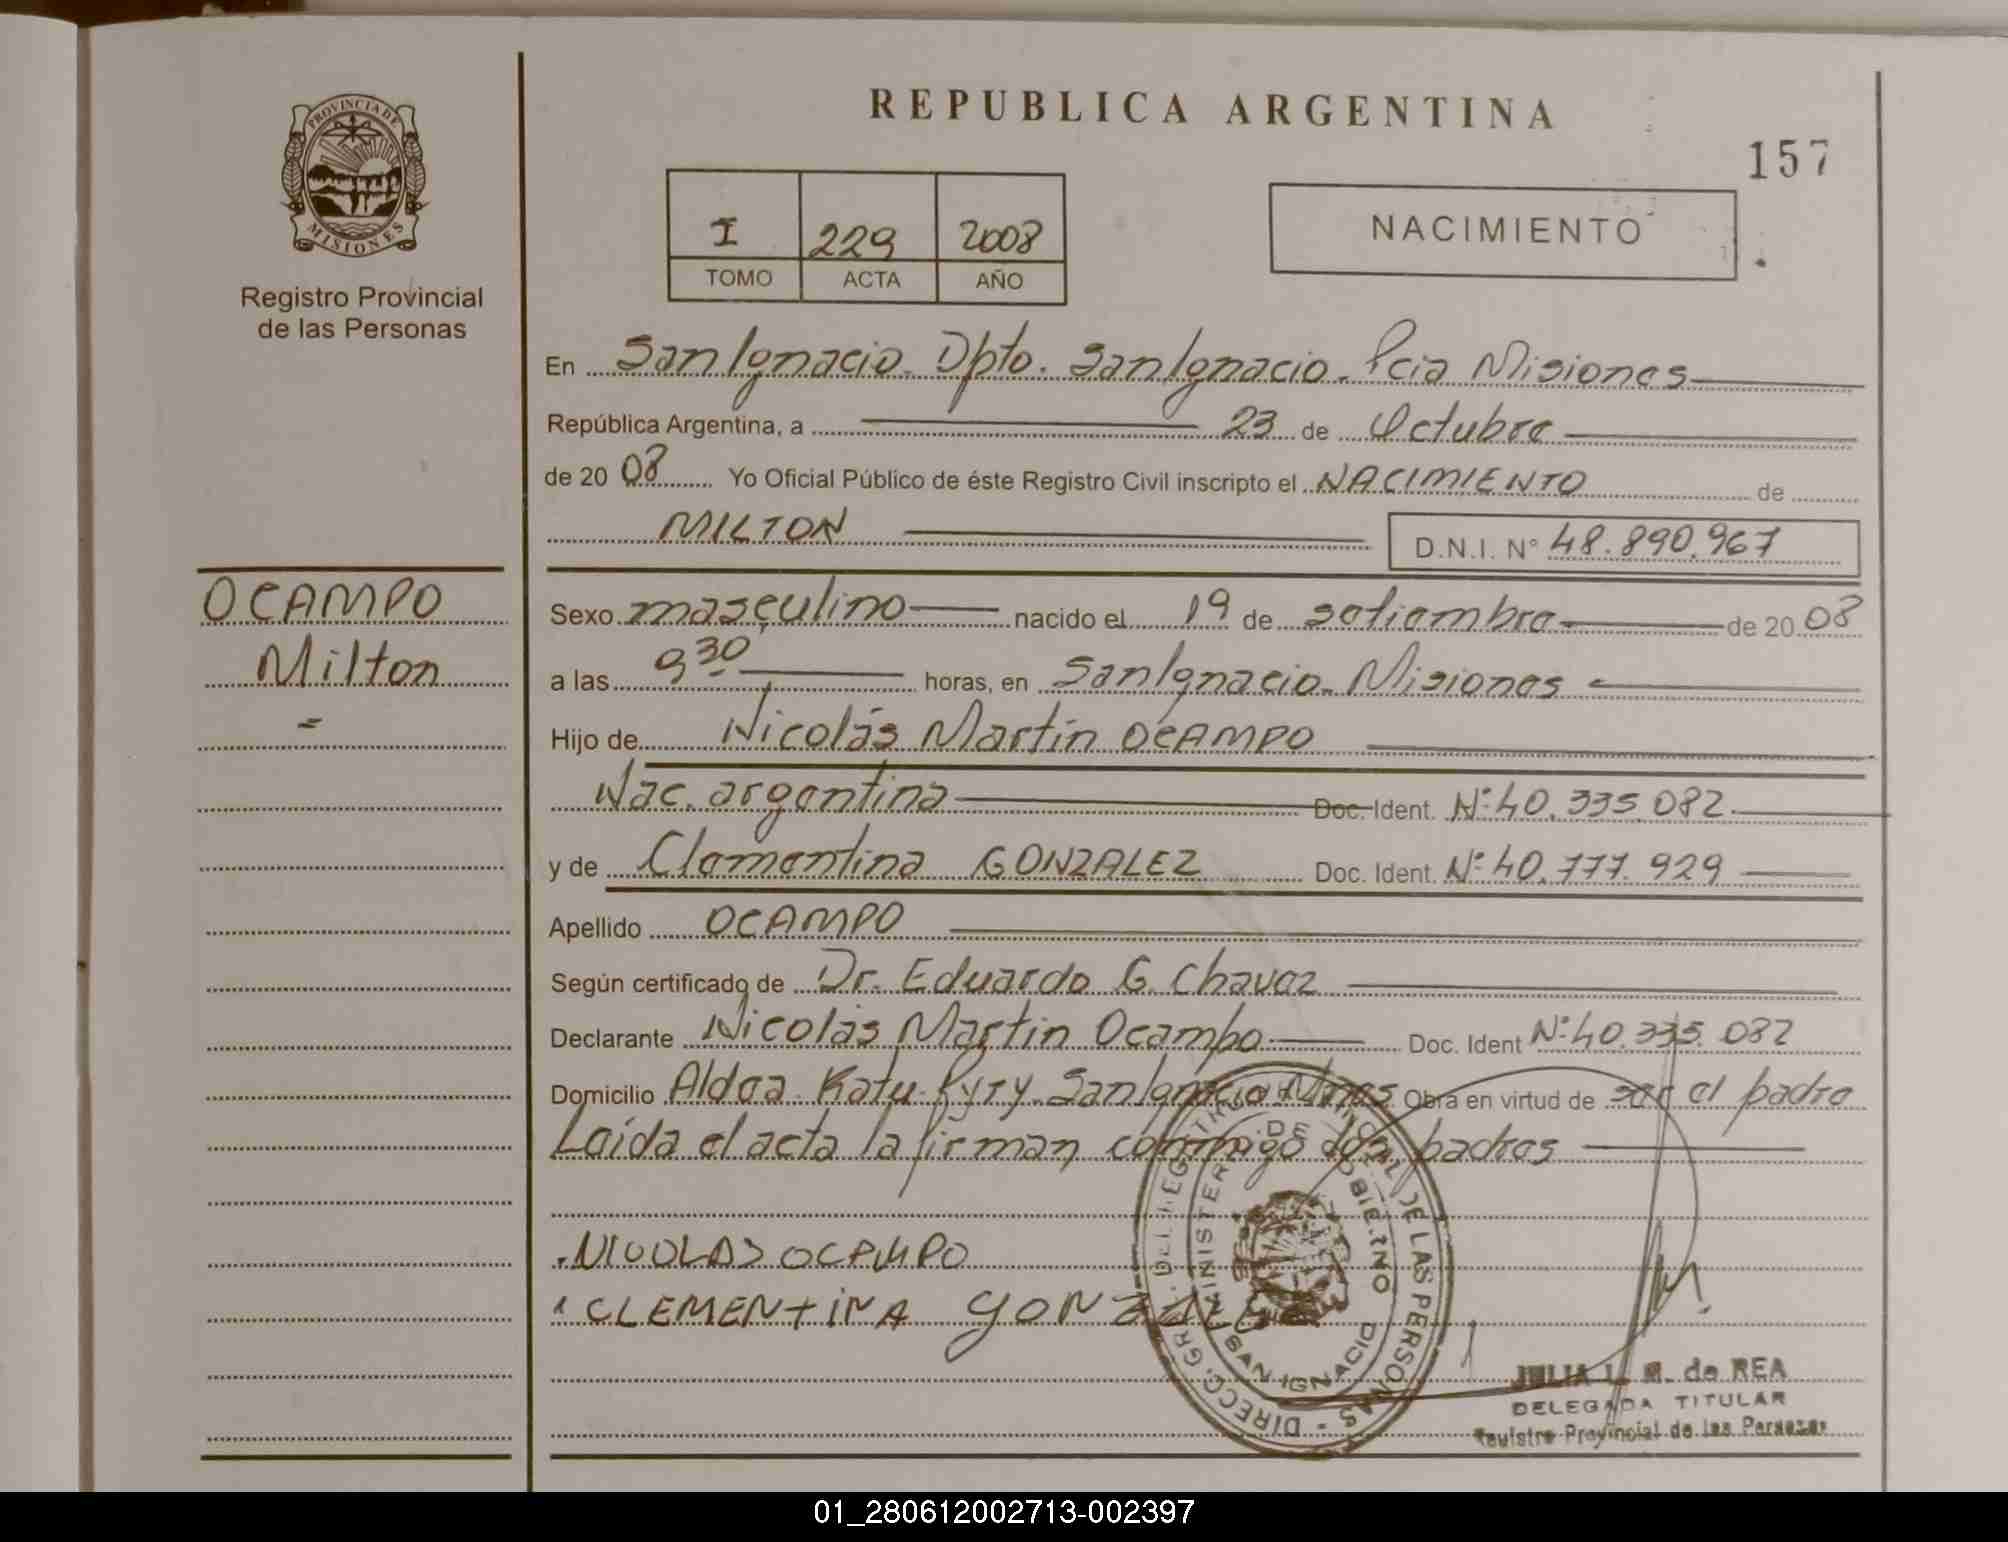 PROVINCIA DE
MISIONES
Registro Provincial
de las Personas
REPUBLICA ARGENTINA
157
I 229 2008
TOMO ACTA AÑO
NACIMIENTO
En San Ignacio. Dpto. San Ignacio. Pcia Misiones
República Argentina, a 23 de Octubre
de 2008 Yo Oficial Público de éste Registro Civil inscripto el NACIMIENTO de
MILTON D.N.I. N° 48.890.967
OCAMPO
Milton
=
Sexo masculino nacido el 19 de setiembre de 2008
a las 9 30 horas, en San Ignacio. Misiones
Hijo de Nicolás Martín OCAMPO
Nac. argentina Doc. Ident. N° 40.335.082
y de Clementina GONZALEZ Doc. Ident. N° 40.777.929
Apellido OCAMPO
Según certificado de Dr. Eduardo G. Chavez
Declarante Nicolás Martín Ocampo Doc. Ident N° 40.335.082
Domicilio Aldea Katu Pyry. San Ignacio Mnes. Obra en virtud de ser el padre
Leída el acta la firman conmigo los padres
NICOLAS OCAMPO
CLEMENTINA GONZALEZ
DE LAS PERSONAS
SAN IGNACIO
JULIA L. M. de REA
DELEGADA TITULAR
Registro Provincial de las Personas
01_280612002713-002397